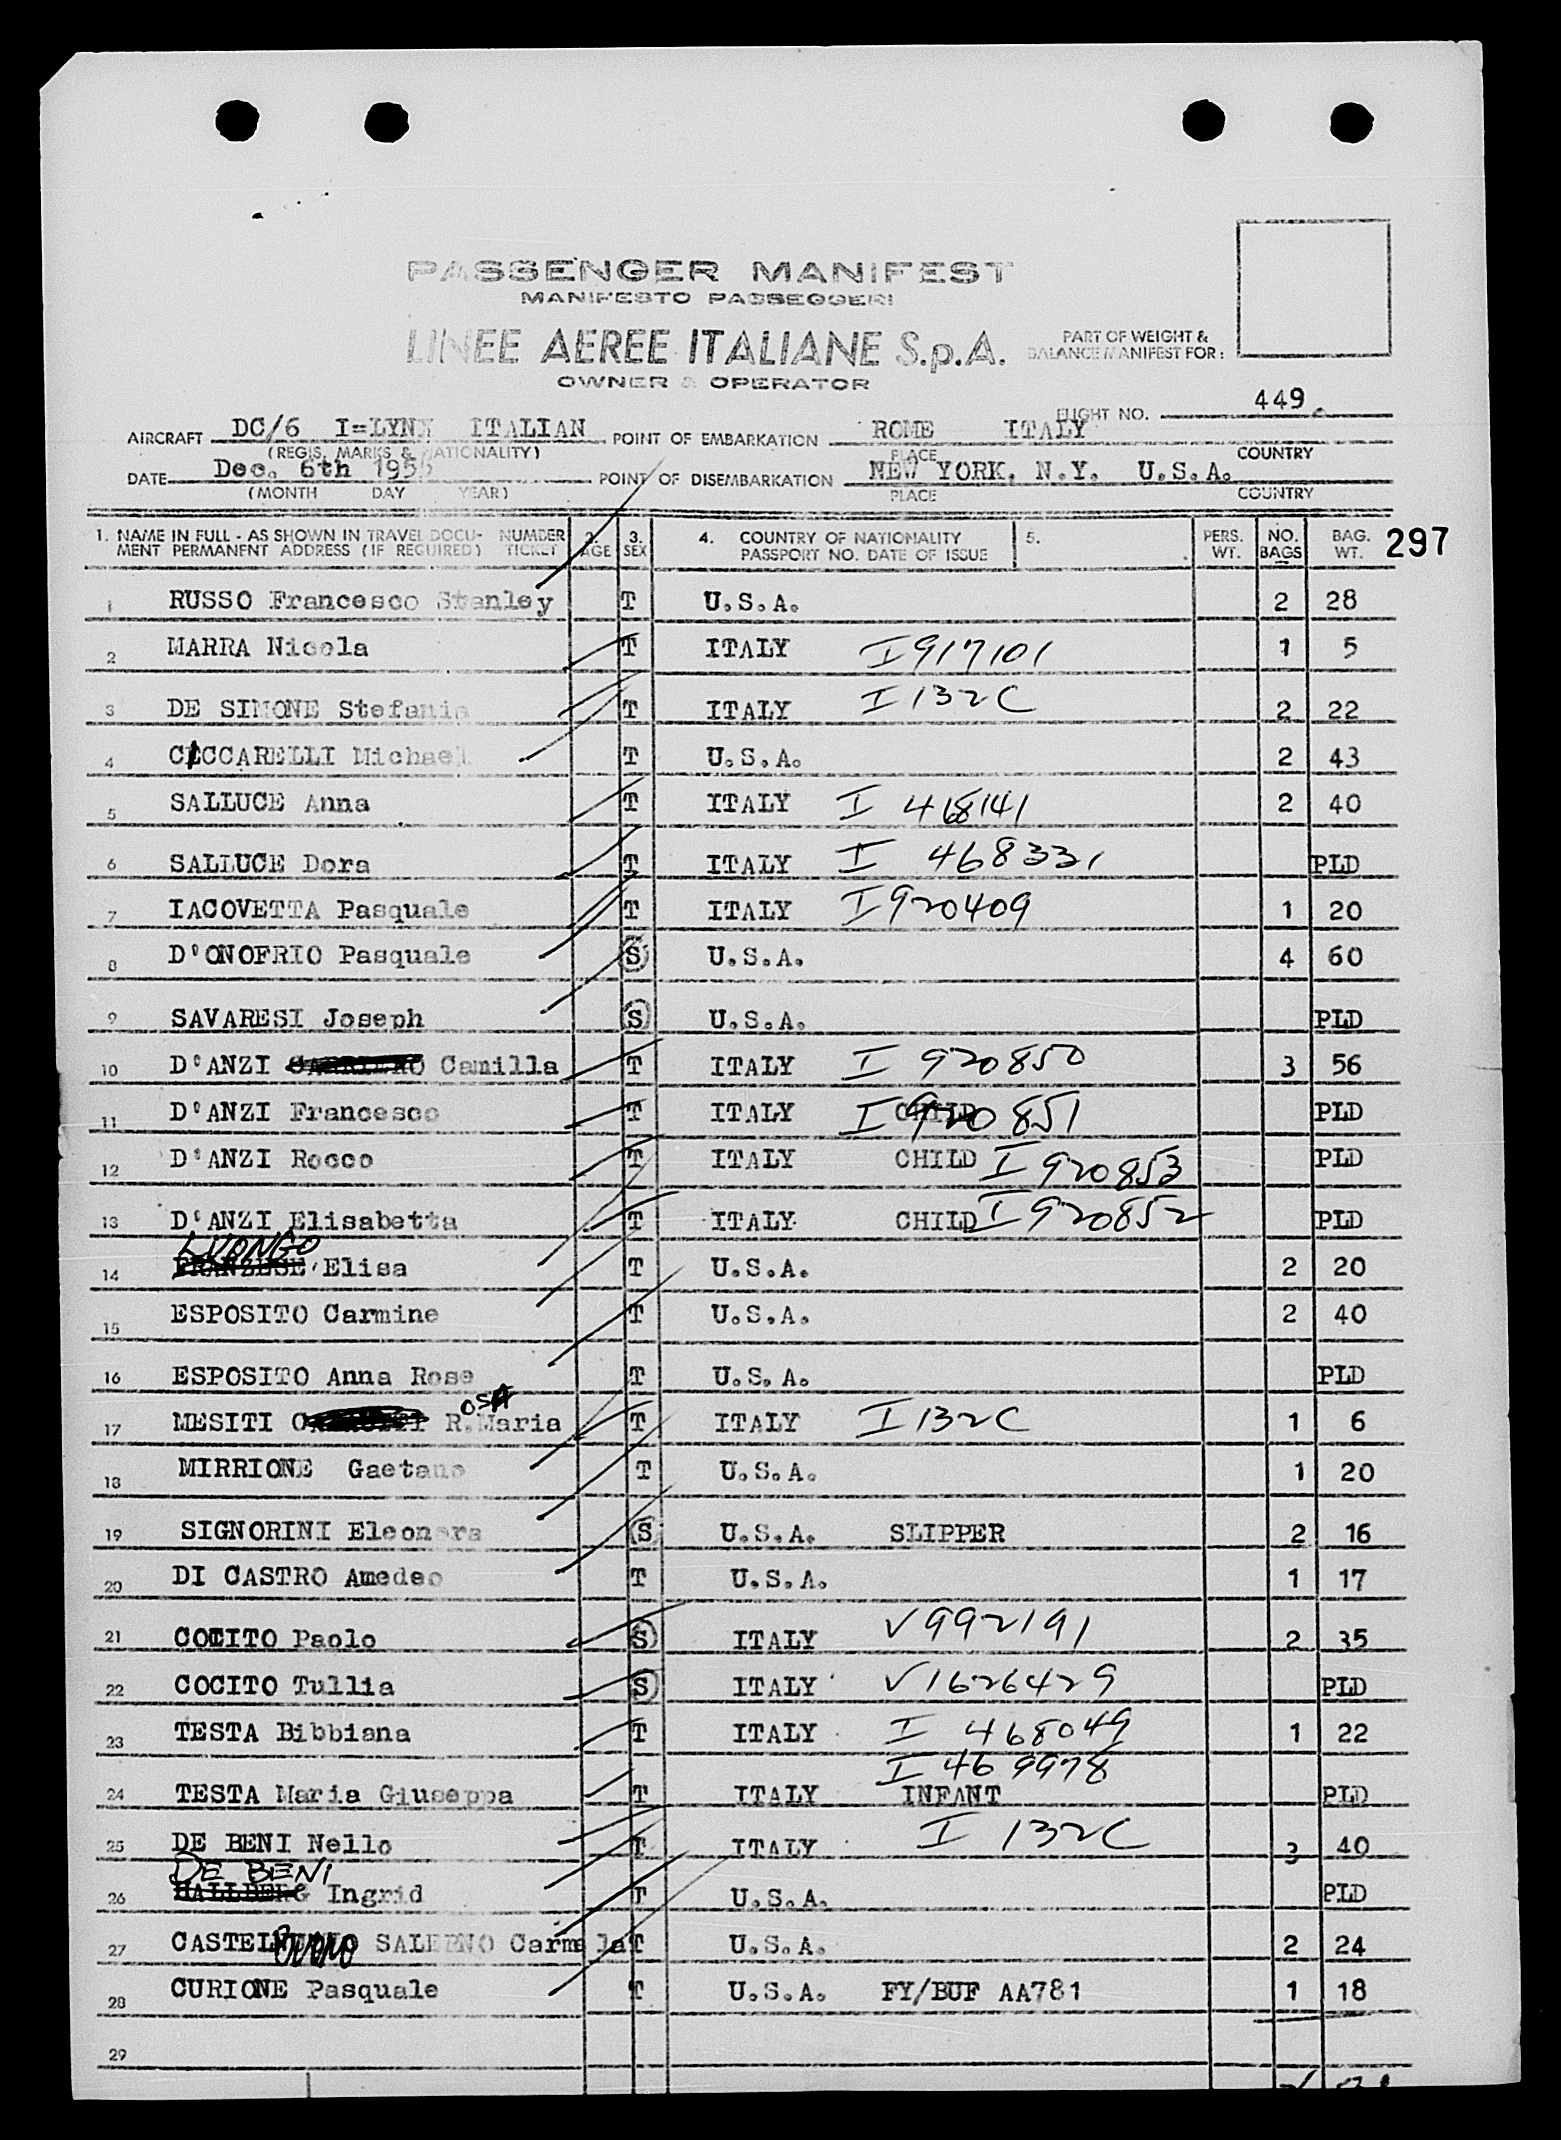 PASSENGER MANIFEST
MANIFESTO PASSEGGERI
LINEE AEREE ITALIANE S.p.A.
OWNER & OPERATOR
PART OF WEIGHT &
BALANCE MANIFEST FOR:
FLIGHT NO. 449
AIRCRAFT DC/6 I=LYNX ITALIAN POINT OF EMBARKATION ROME ITALY
(REGIS, MARKS & NATIONALITY) PLACE COUNTRY
DATE Dec. 6th 1955 POINT OF DISEMBARKATION NEW YORK, N.Y. U.S.A.
(MONTH DAY YEAR) PLACE COUNTRY
1. NAME IN FULL - AS SHOWN IN TRAVEL DOCU- NUMBER 2. 3. 4. COUNTRY OF NATIONALITY 5. PERS. NO. BAG. 297
MENT PERMANENT ADDRESS (IF REQUIRED) TICKET AGE SEX PASSPORT NO. DATE OF ISSUE WT. BAGS WT.
1 RUSSO Francesco Stanley T U.S.A. 2 28
2 MARRA Nicola T ITALY I917101 1 5
3 DE SIMONE Stefania T ITALY I 132C 2 22
4 CICCARELLI Michael T U.S.A. 2 43
5 SALLUCE Anna T ITALY I 468141 2 40
6 SALLUCE Dora T ITALY I 468331 PLD
7 IACOVETTA Pasquale T ITALY I920409 1 20
8 D'ONOFRIO Pasquale S U.S.A. 4 60
9 SAVARESI Joseph S U.S.A. PLD
10 D'ANZI Camilla T ITALY I 920850 3 56
11 D'ANZI Francesco T ITALY CHILD I 920851 PLD
12 D'ANZI Rocco T ITALY CHILD I 920853 PLD
13 D'ANZI Elisabetta T ITALY CHILD I 920852 PLD
LUONGO
14 FRANZESE Elisa T U.S.A. 2 20
15 ESPOSITO Carmine T U.S.A. 2 40
16 ESPOSITO Anna Rose T U.S.A. PLD
OSA
17 MESITI R.Maria T ITALY I 132C 1 6
18 MIRRIONE Gaetano T U.S.A. 1 20
19 SIGNORINI Eleonora S U.S.A. SLIPPER 2 16
20 DI CASTRO Amedeo T U.S.A. 1 17
21 COCITO Paolo S ITALY V992191 2 35
22 COCITO Tullia S ITALY V1626429 PLD
23 TESTA Bibbiana T ITALY I 468049 1 22
I 469978
24 TESTA Maria Giuseppa T ITALY INFANT PLD
25 DE BENI Nello T ITALY I 132C 3 40
DE BENI
26 HALLBERG Ingrid T U.S.A. PLD
27 CASTELBUONO SALERNO Carmela T U.S.A. 2 24
28 CURIONE Pasquale T U.S.A. FY/BUF AA781 1 18
29